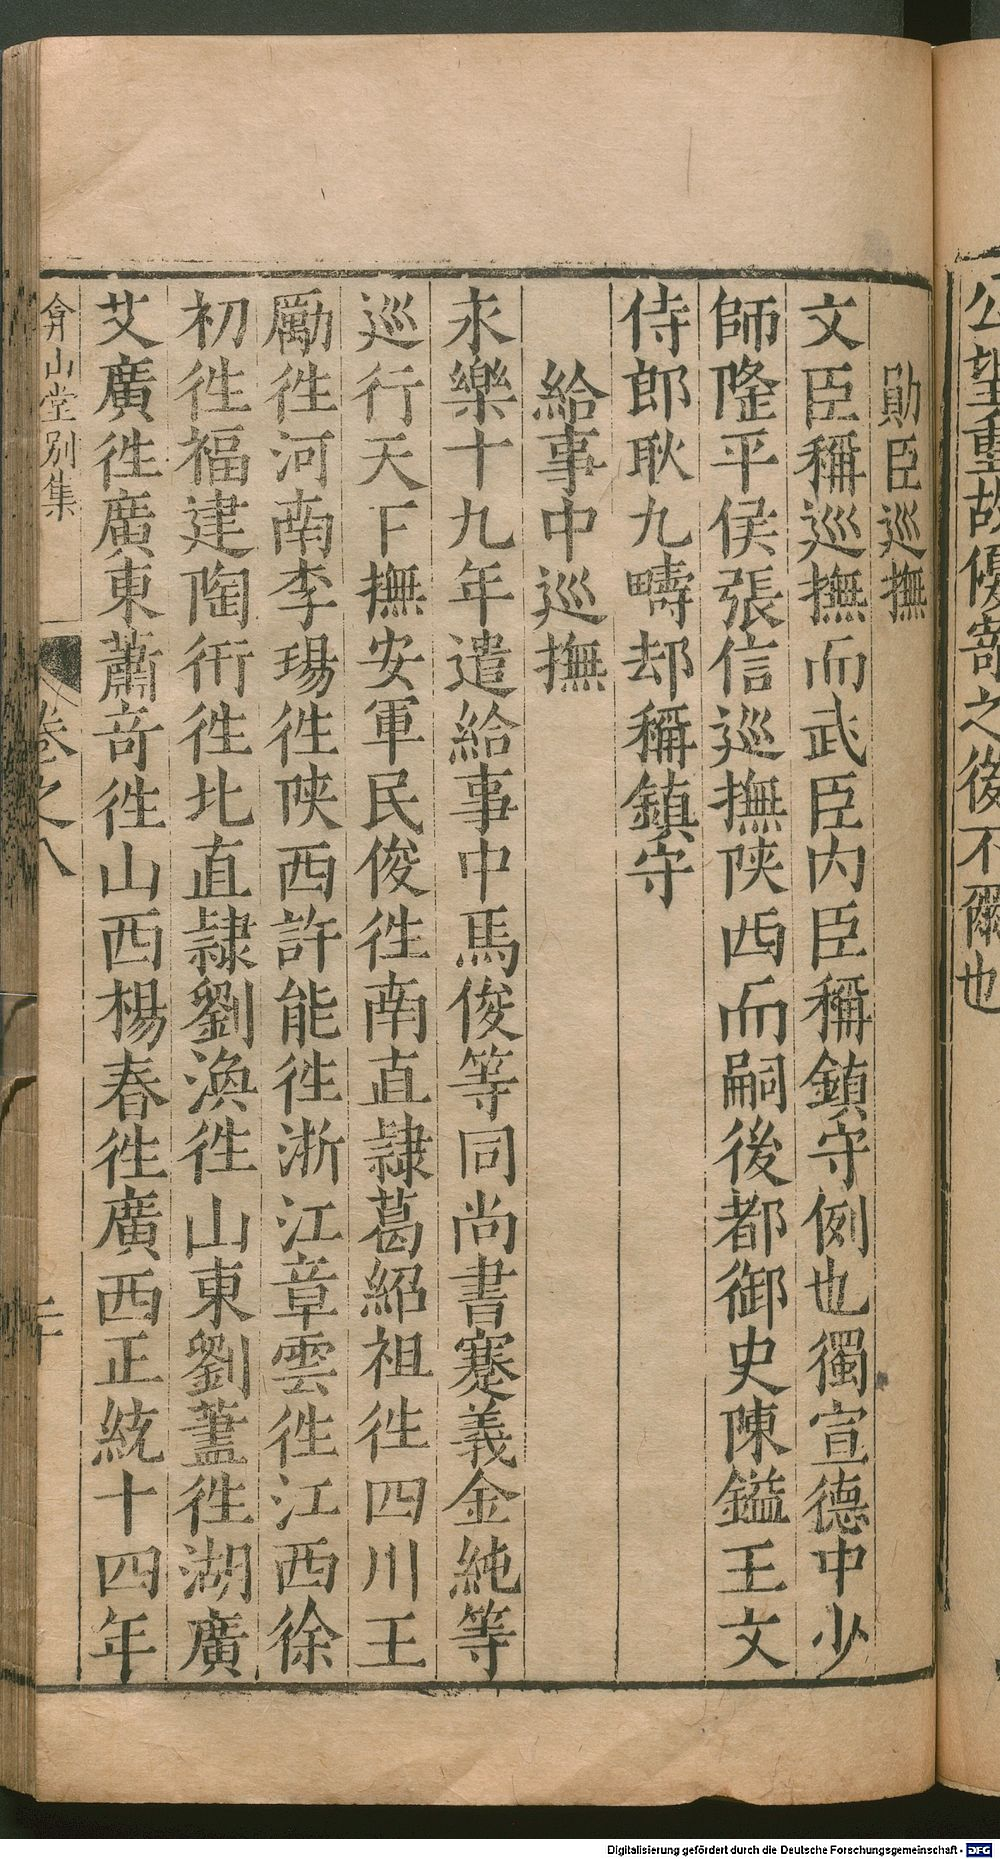 公望重故優寄之後不爾也
勛臣巡撫
文臣稱巡撫而武臣内臣稱鎮守例也獨宣德中少
師隆平侯張信巡撫陝西而嗣後都御史陳鎰王文
侍郎耿九疇却稱鎮守
給事中巡撫
永樂十九年遣給事中馬俊等同尚書蹇義金純等
巡行天下撫安軍民俊徃南直隷葛紹祖徃四川王
勵徃河南李瑒徃陝西許能徃浙江章雲徃江西徐
初徃福建陶衎徃北直隷劉渙徃山東劉蓋徃湖廣
艾廣徃廣東蕭竒徃山西楊春徃廣西正統十四年
弇山堂别集
卷之八
Digitalisierung gefördert durch die Deutsche Forschungsgemeinschaft - DFG